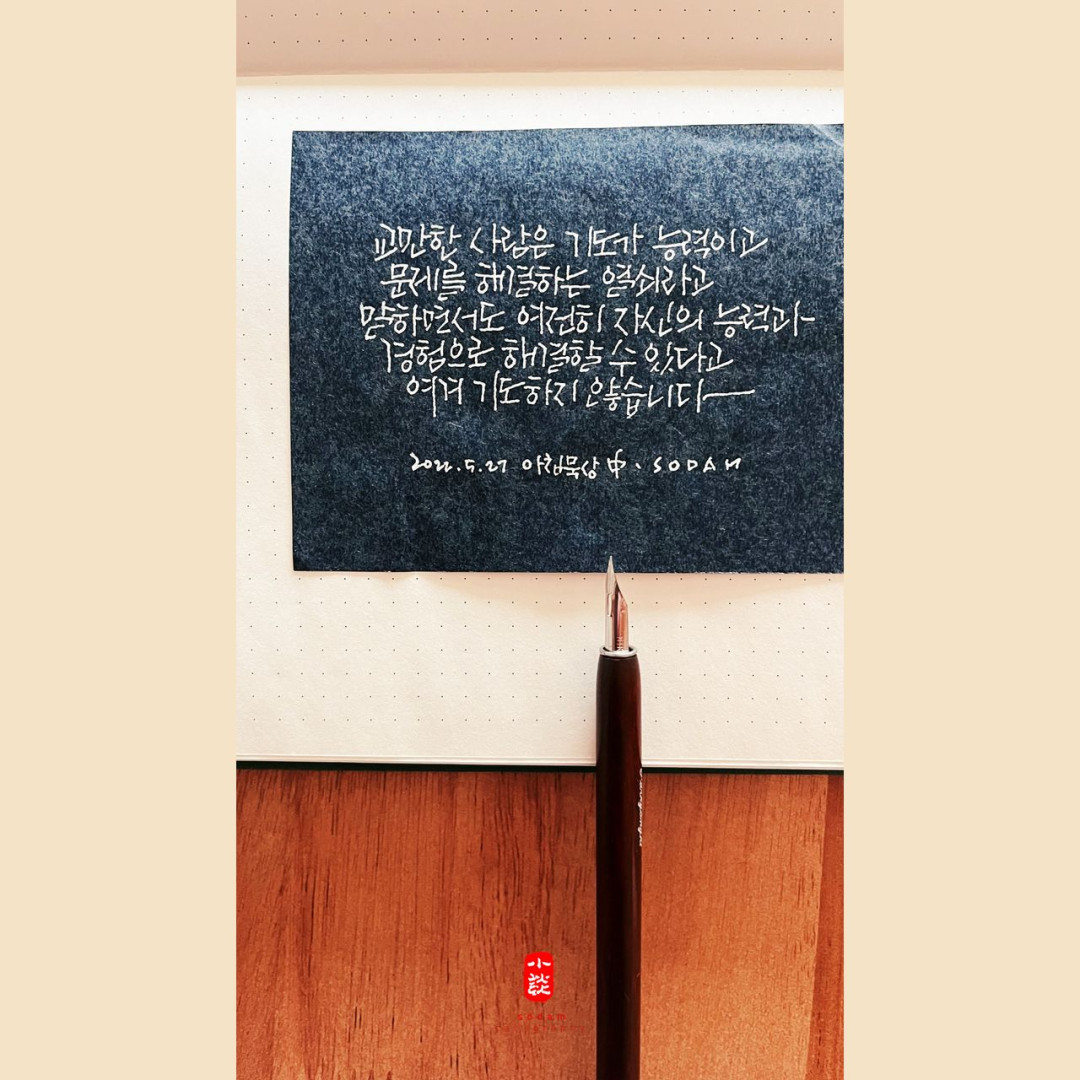 교만한 사람은 기도가 능력이고
문제를 해결하는 열쇠라고
말하면서도 여전히 자신의 능력과
경험으로 해결할 수 있다고
여겨 기도하지 않습니다
2022.5.27 아침묵상 中、SODAM
小談